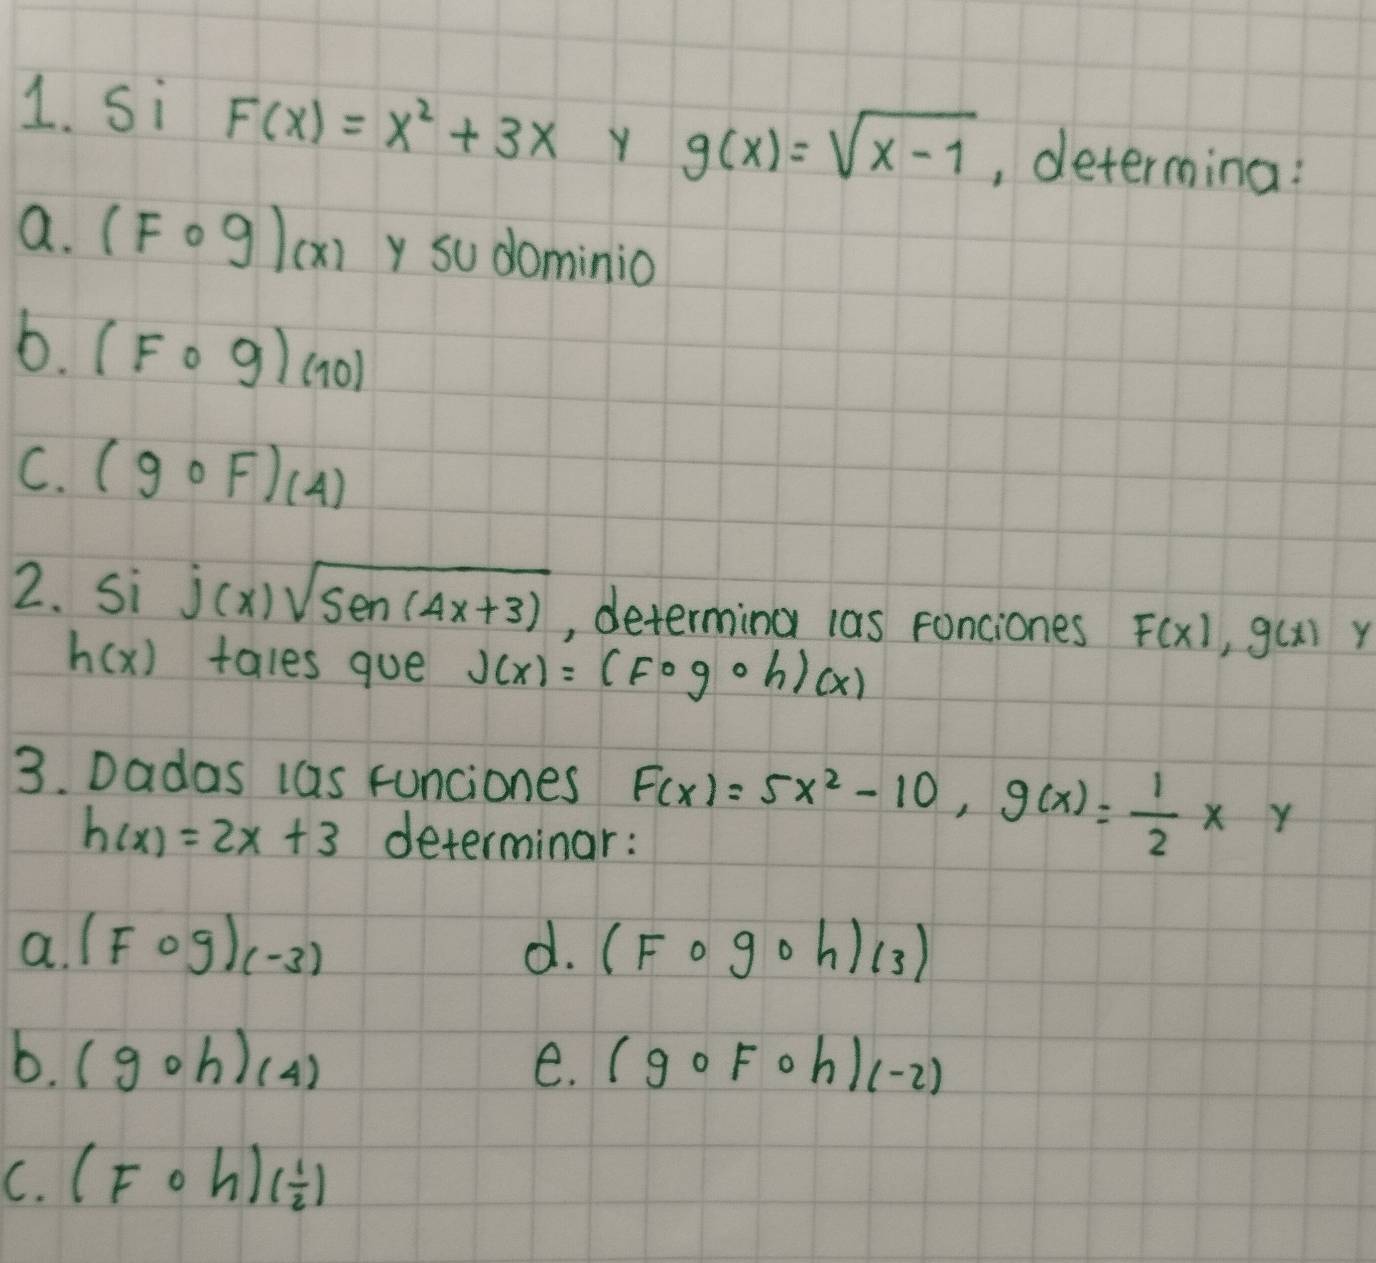 1. Si F(x) = x² + 3x y g(x) = √(x - 1), determina:
a. (F ∘ g)(x) y su dominio
b. (F ∘ g)(10)
c. (g ∘ F)(4)
2. Si j(x) √(sen (4x+3)), determina las fonciones F(x), g(x) y
h(x) tales que J(x) = (F ∘ g ∘ h)(x)
3. Dadas las funciones F(x) = 5x² - 10, g(x) = 1/2 x y
h(x) = 2x + 3 determinar:
a. (F ∘ g)(-3) d. (F ∘ g ∘ h)(3)
b. (g ∘ h)(4) e. (g ∘ F ∘ h)(-2)
c. (F ∘ h)(1/2)